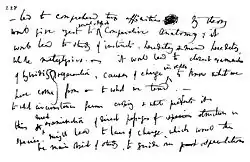 228
— led to comprehend true affinities. My theory
would give zest to recent & Fossil Comparative Anatomy; it
would lead to study of instincts, heredity, & mind heredity,
whole metaphysics. — it would lead to closest examination
of hybridity & generation, causes of change in order to know what we
have come from & to what we tend. —
to what circumstances favour crossing & what prevents it
this & direct examination of direct passages of species structures in
species, might lead to laws of change, which would then
be main object of study, to guide our past speculations